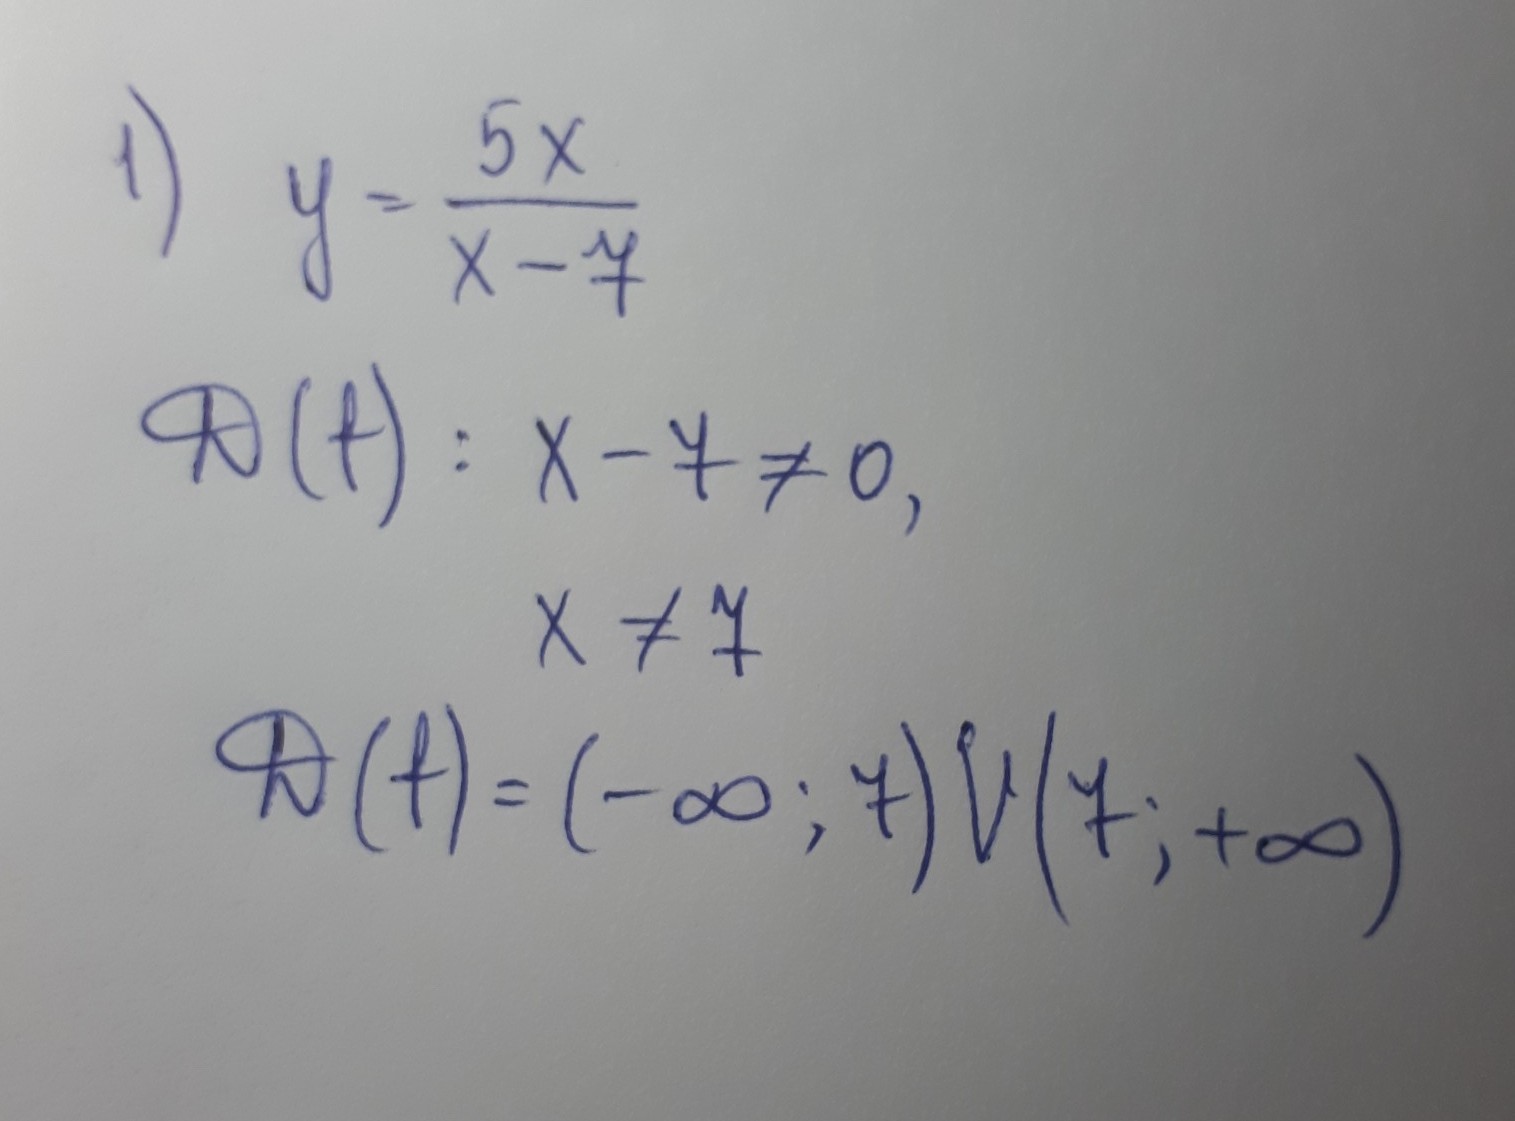 1) y = 5x / (x - 7)
D(f): x - 7 ≠ 0,
x ≠ 7
D(f) = (-∞; 7) ∪ (7; +∞)